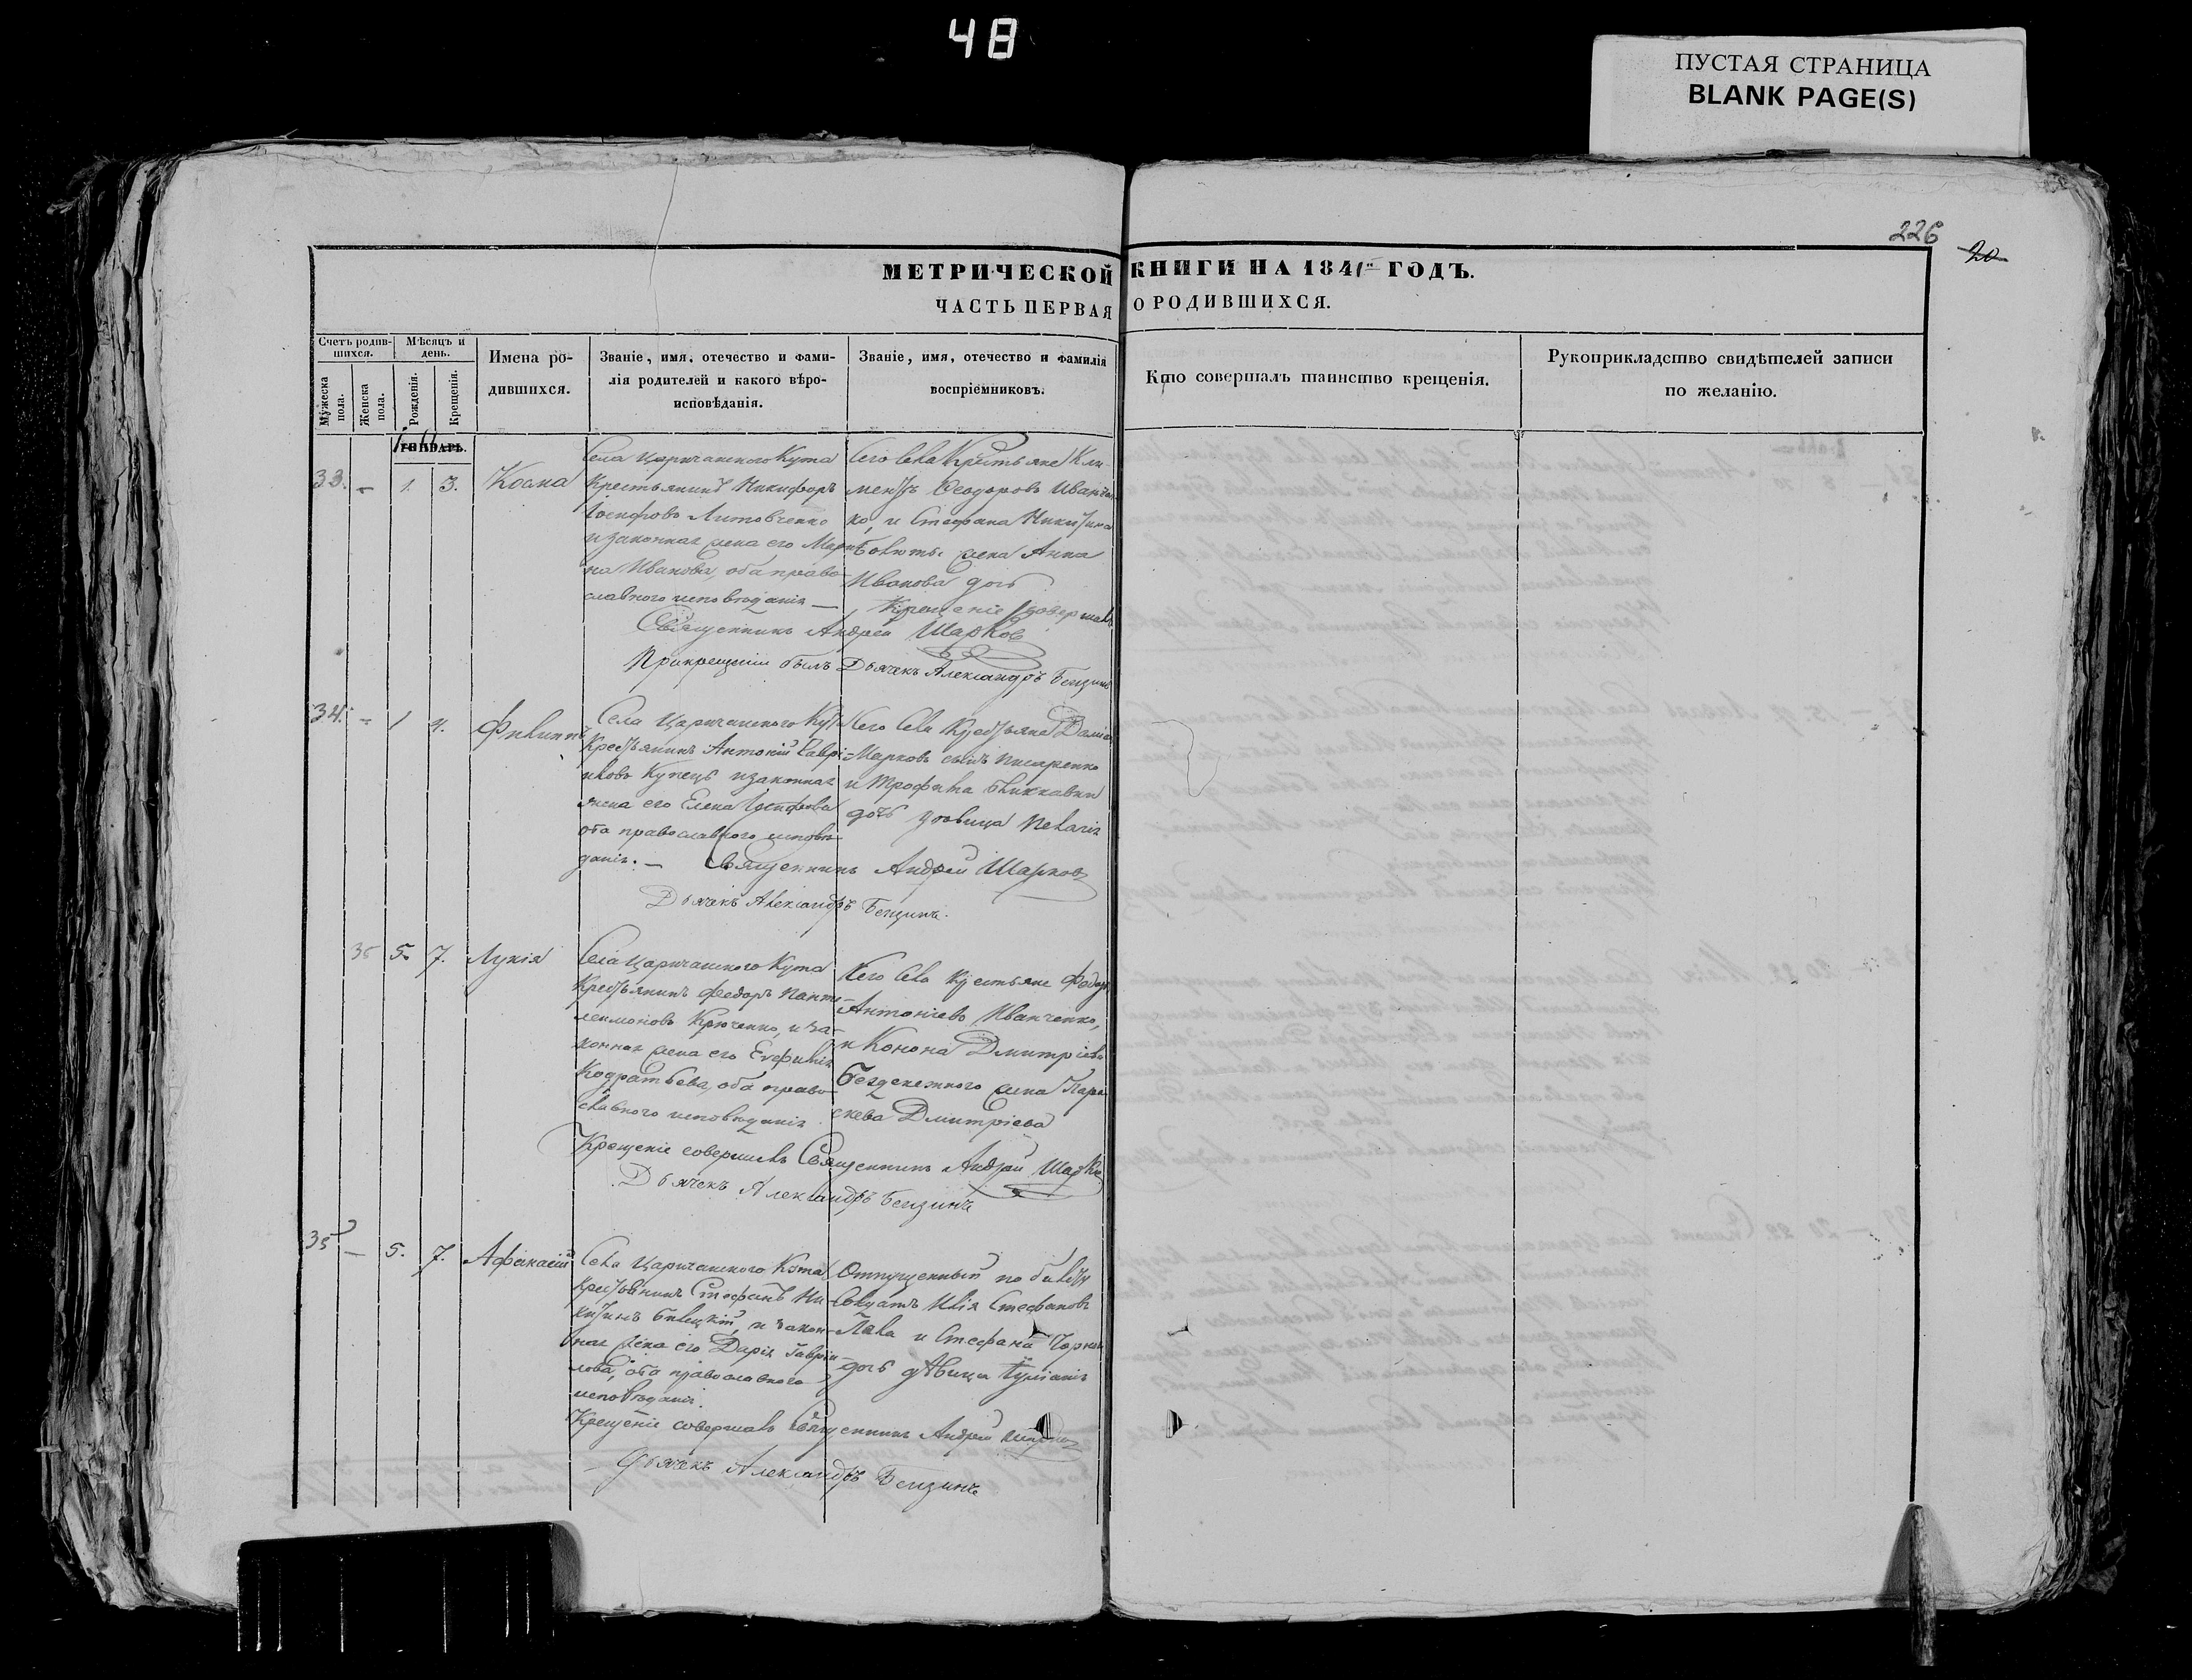 48
ПУСТАЯ СТРАНИЦА
BLANK PAGE(S)
226
20
МЕТРИЧЕСКОЙ КНИГИ НА 1841 ГОДЪ.
ЧАСТЬ ПЕРВАЯ О РОДИВШИХСЯ.
Счетъ родив-
шихся.
Мужеска пола.
Женска пола.
Мѣсяцъ и
день.
Рожденія.
Крещенія.
Имена ро-
дившихся.
Званіе, имя, отечество и фами-
лія родителей и какого вѣро-
исповѣданія.
Званіе, имя, отечество и фамилія
воспріемниковъ.
Кто совершалъ таинство крещенія.
Рукоприкладство свидѣтелей записи
по желанію.
ЯНВАРЬ.
33. — 1. 3. Косма
Села Царичанского Кута
Крестьянинъ Никифоръ
Іосифовъ Литовченко
и законная жена его Мари-
на Иванова, оба право-
славного исповѣданія —
Сего села Крестьяне Кли-
ментъ Феодоровъ Иванчен-
ко, и Стефана Никитина
жена Анна
Иванова дочь
Крещеніе совершалъ
Священникъ Андрей Шарков
При крещеніи былъ Дьячекъ Александръ Бензинъ
34. — 1 4. Филиппъ
Села Царичанского Кута
Крестьянинъ Антоній Гаврі-
иловъ Купецъ и законная
жена его Елена Іосифова
оба православного исповѣ-
данія. —
Сего села Крестьяне
Марковъ сынъ Писаренко
и Трофима
дочь удовица Пелагія
Священникъ Андрей Шарков
Дьячекъ Александръ Бензинъ.
35 5. 7. Лукія
Села Царичанского Кута
Крестьянинъ Федоръ Панте-
леимоновъ Крюченко, и за-
конная жена его Евфимія
Кодратьева, оба право-
славного исповѣданія
Сего села Крестьяне Федоръ
Антоніевъ Иванченко,
и Конона Дмитріева
безденежного жена Пара-
скева Дмитріева
Крещеніе совершалъ Священникъ Андрей Шарков
Дьячекъ Александръ Бензинъ
35 — 5. 7. Афанасій
Села Царичанского Кута
Крестьянинъ Стефанъ Ни-
китинъ Билецкій, и закон-
ная жена его Дарія Гаврии-
лова, оба православного
исповѣданія.
Отпущенный по билету
Солдатъ Илія Стефановъ
и Стефана
дочь дѣвица Іуліанія
Крещеніе совершалъ Священникъ Андрей Шарков
Дьячекъ Александръ Бензинъ